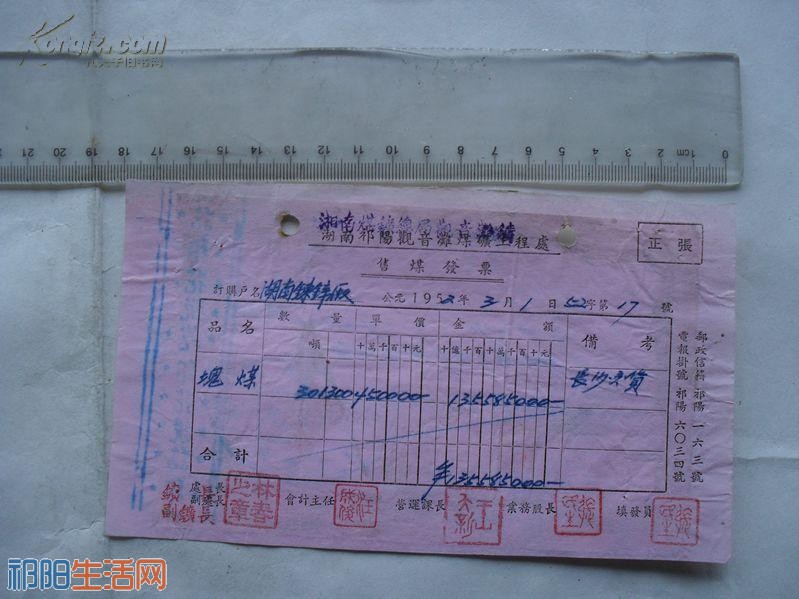 Kongfz.com
孔夫子旧书网
21 20 19 18 17 16 15 14 13 12 11 10 9 8 7 6 5 4 3 2 1cm 0
湖南煤鑛總局觀音灘鑛
湖南祁陽觀音灘煤礦工程處
正張
售煤發票
訂購戶名 湖南鍊鋅廠 公元1952年3月1日 52字第17號
品名 數量 單價 金額 備考
噸 十萬千百十元 十億千百十萬千百十元
塊煤 301300 450000- 135585000- 長沙交貨
合計 135585000-
郵政信箱祁陽一六三號
電報掛號祁陽六〇三四號
處長
副處長
鑛長
副鑛長
林春之章
會計主任
營運課長
業務股長
填發員
祁阳生活网